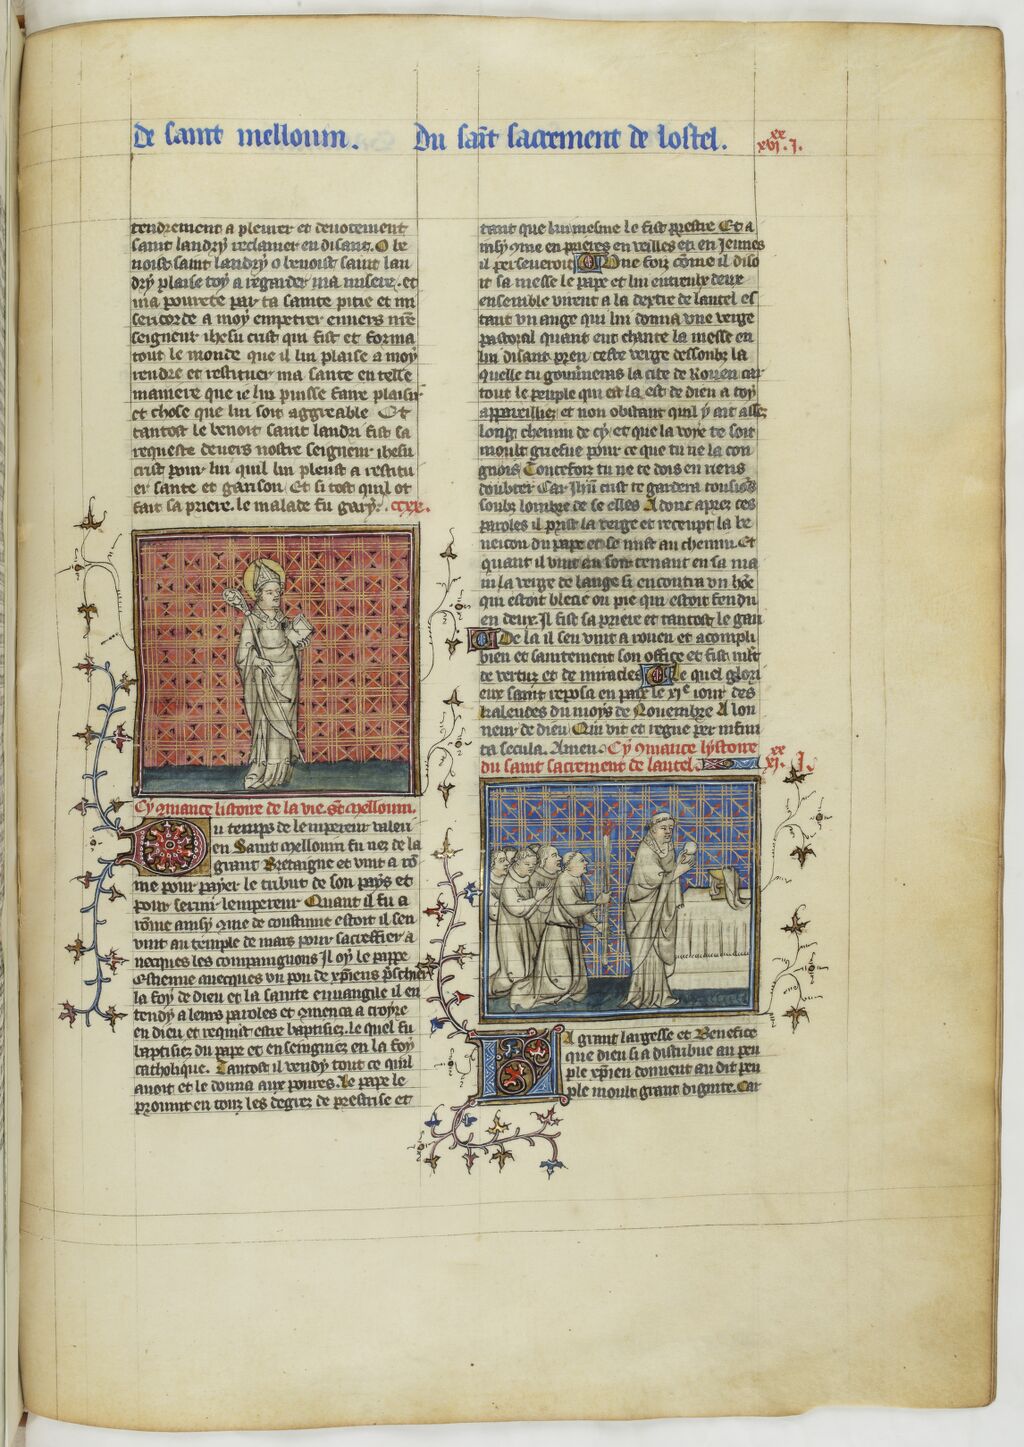 de saint melloum. Du saīt sacrement de lostel. xx xvj.j.
tendrement a pleurer et deuotement
saint landry reclamer en disant. O be
noist saint landry o benoist saint lan
dry plaise toy a regarder ma misere. et
ma pourete par ta sainte pitie et mi
sericorde a moy empetrer enuers nr̄e
seigneur ihesu crist qui fist et forma
tout le monde que il lui plaise a moy
rendre et restituer ma sante en telle
maniere que ie lui puisse faire plaisir
et chose que lui soit aggreable Et
tantost le benoit saint landri fist sa
requeste deuers nostre seigneur ihesu
crist pour lui quil lui pleust a restitu
er sante et garison. Et si tost quil ot
fait sa priere. le malade fu gary. ccxx.
Cy ɔmance listoire de la vie. st̄ Melloum.
u temps de lempereur valeri
en Saint melloum fu nez de la
grant Bretaigne et vint a rō
me pour paier le tribut de son pays et
pour seruir lempereur Quant il fu a
rōme ainsy ɔme de coustume estoit il sen
vint au temple de mars pour sacreffier a
uecques les compaignons Il oy le pappe
Estienne auecques vn pou de xp̄iens p̄schier
la foy de dieu et la sainte euuangile il en
tendy a leurs paroles et ɔmenca a croyre
en dieu et requist estre baptisiez. le quel fu
baptisiez du pape et enseingniez en la foy
catholique. Tantost il vendy tout ce quil
auoit et le donna aux poures. Le pape le
proumt en touz les degrez de prestrise et
tant que lui mesme le fist prestre Et a
insy ɔme en prieres en veilles et en Jeunes
il perseueroit Une foiz cōme il diso
it sa messe le pape et lui entreulx deux
ensemble virent a la dextre de lautel es
tant vn ange qui lui donna vne verge
pastoral quant eut chante la messe en
lui disant pren ceste verge dessoubz la
quelle tu gouūneras la cite de Rouen car
tout le peuple qui est la est de dieu a toy
appareilliez et non obstant quil y ait assez
long chemin de cy et que la voye te soit
moult griefue pour ce que tu ne la con
gnois Toutefoiz tu ne te dois en riens
doubter Car Jhū crist te gardera tousiōs
soubz lombre de se elles Adont aprez ces
paroles il prist la verge et receupt la be
neicon du pape et se mist au chemin. Et
quant il vint en son tenant en sa ma
in la verge de lange si encontra vn hōe
qui estoit blecie ou pie qui estoit fendu
en deux. Il fist sa priere et tantost le gari
De la il seu vint a rouen et acompli
bien et saintement son office et fist mlt̄
te vertuz et de miracles Le quel glori
eux saint reposa en paix le xiᵉ iour des
kalendes du moys de Nouembre A lon
neur de dieu Qui vit et regne per infini
ta secula. Amen. Cy ɔmance lystoire
du saint sacrement de lautel. xx xj. j.
A grant largesse et Benefice
que dieu si a distribue au peu
ple xp̄ien donnent au dit peu
ple moult grant dignite. Car